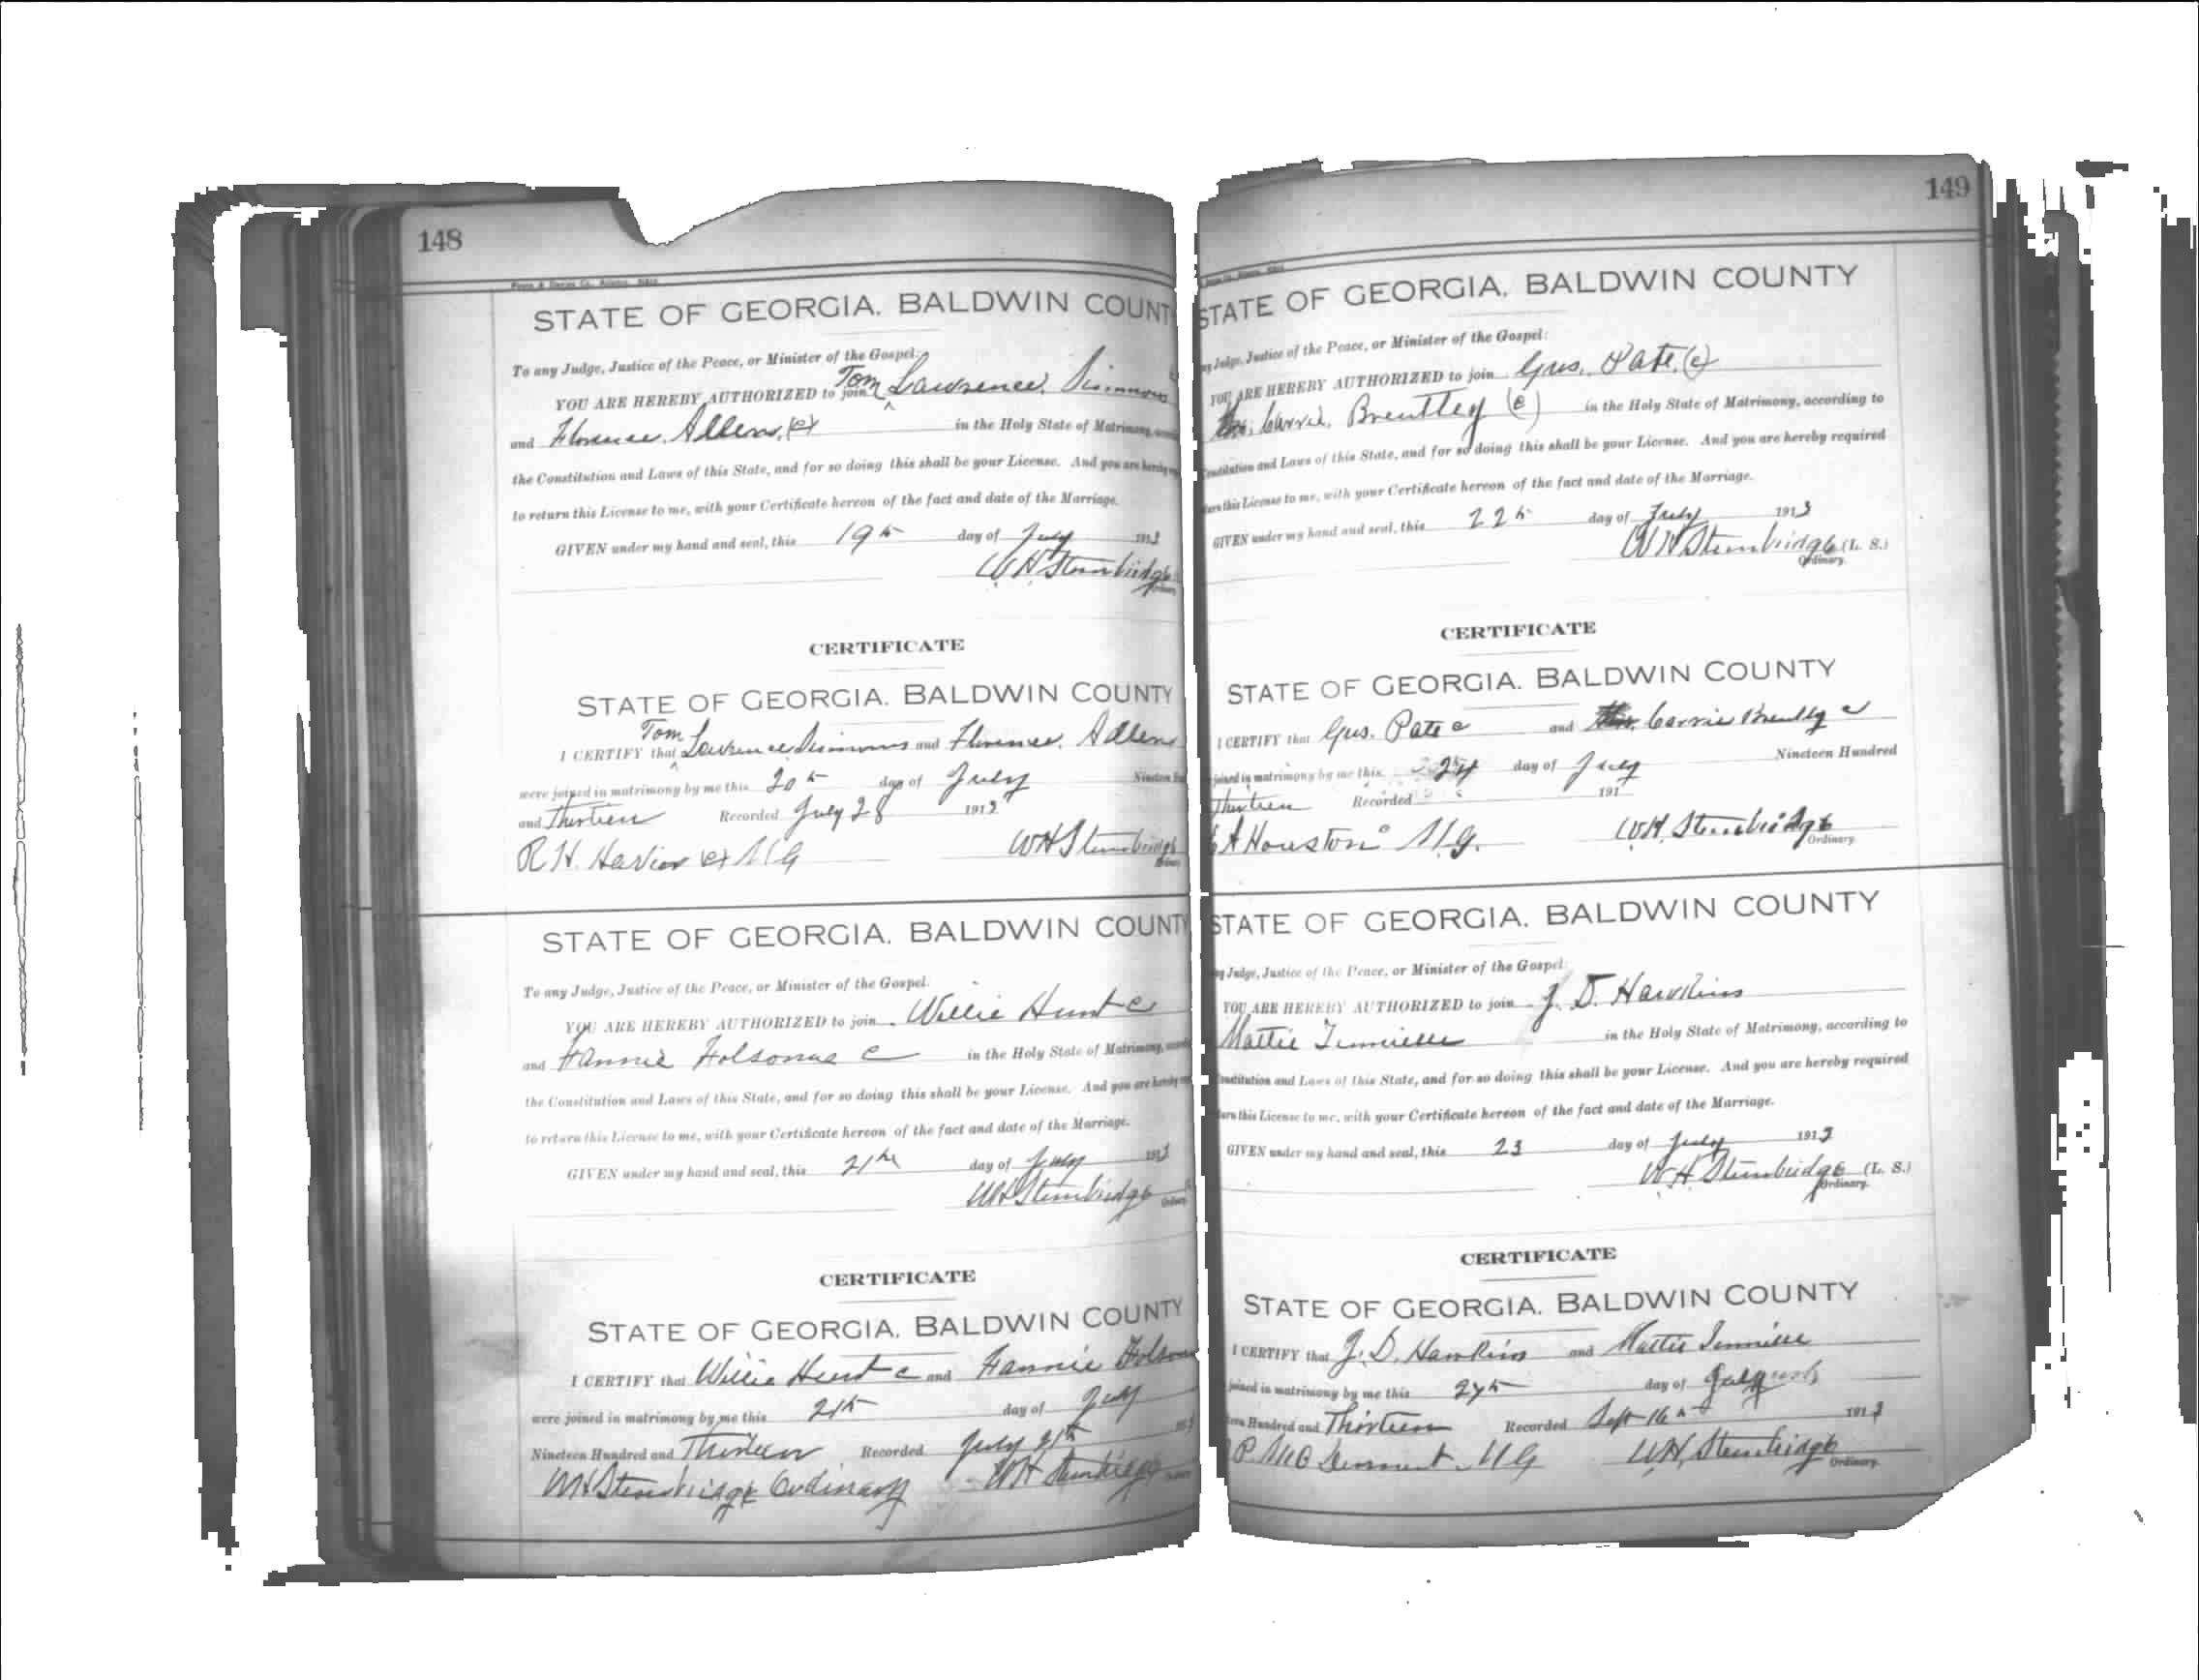 148
STATE OF GEORGIA. BALDWIN COUNT
To any Judge, Justice of the Peace, or Minister of the Gospel:
YOU ARE HEREBY AUTHORIZED to join Tom Lawrence Simmons
and Florence Allen (c) in the Holy State of Matrimony,
the Constitution and Laws of this State, and for so doing this shall be your License. And you are hereby
to return this License to me, with your Certificate hereon of the fact and date of the Marriage.
GIVEN under my hand and seal, this 19th day of July 1913
W H Stembridge
CERTIFICATE
STATE OF GEORGIA. BALDWIN COUNTY
I CERTIFY that Tom Lawrence Simmons and Florence Allen
were joined in matrimony by me this 20th day of July
and Thirteen Recorded July 28 1913
R. H. c M G WH Stembridge
STATE OF GEORGIA. BALDWIN COUNTY
To any Judge, Justice of the Peace, or Minister of the Gospel.
YOU ARE HEREBY AUTHORIZED to join Willie Hunt c
and Fannie Holsome c in the Holy State of Matrimony,
the Constitution and Laws of this State, and for so doing this shall be your License. And you are hereby
to return this License to me, with your Certificate hereon of the fact and date of the Marriage.
GIVEN under my hand and seal, this 21st day of July 1913
WH Stembridge
CERTIFICATE
STATE OF GEORGIA. BALDWIN COUNTY
I CERTIFY that Willie Hunt c and Fannie
were joined in matrimony by me this 21st day of July
Nineteen Hundred and Thirteen Recorded July 21st
WH Stembridge Ordinary WH Stembridge
149
STATE OF GEORGIA. BALDWIN COUNTY
Judge, Justice of the Peace, or Minister of the Gospel:
YOU ARE HEREBY AUTHORIZED to join Gus. Pate (c)
Carrie Brentley (c) in the Holy State of Matrimony, according to
Constitution and Laws of this State, and for so doing this shall be your License. And you are hereby required
this License to me, with your Certificate hereon of the fact and date of the Marriage.
GIVEN under my hand and seal, this 22 day of July 1913
W H Stembridge (L. S.)
Ordinary.
CERTIFICATE
STATE OF GEORGIA. BALDWIN COUNTY
I CERTIFY that Gus. Pate c and Carrie Brentley c
joined in matrimony by me this 24 day of July Nineteen Hundred
Thirteen Recorded 191
A Houston M.G. W.H. Stembridge
Ordinary
STATE OF GEORGIA. BALDWIN COUNTY
Judge, Justice of the Peace, or Minister of the Gospel.
YOU ARE HEREBY AUTHORIZED to join J. D. Hawkins
Mattie in the Holy State of Matrimony, according to
Constitution and Laws of this State, and for so doing this shall be your License. And you are hereby required
this License to me, with your Certificate hereon of the fact and date of the Marriage.
GIVEN under my hand and seal, this 23 day of July 1913
W H Stembridge (L. S.)
Ordinary.
CERTIFICATE
STATE OF GEORGIA. BALDWIN COUNTY
I CERTIFY that J. D. Hawkins and Mattie
joined in matrimony by me this 27th day of July
Hundred and Thirteen Recorded Sept 16th 1913
M G W.H. Stembridge
Ordinary.